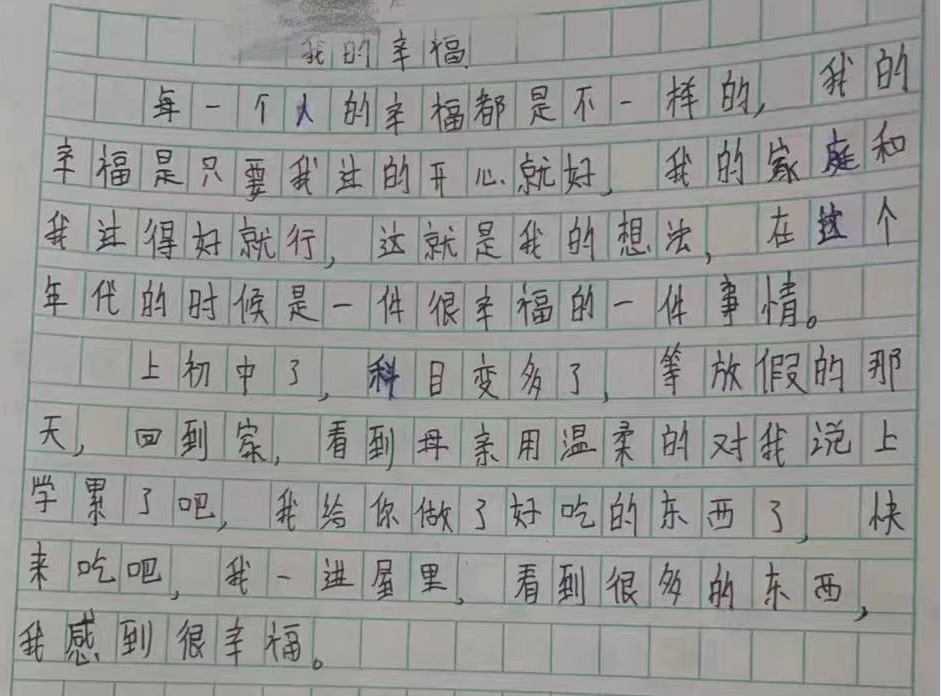 我的幸福
每一个人的幸福都是不一样的,我的
幸福是只要我过的开心就好,我的家庭和
我过得好就行,这就是我的想法,在这个
年代的时候是一件很幸福的一件事情。
上初中了,科目变多了,等放假的那
天,回到家,看到母亲用温柔的对我说上
学累了吧,我给你做了好吃的东西了,快
来吃吧,我一进屋里,看到很多的东西,
我感到很幸福。